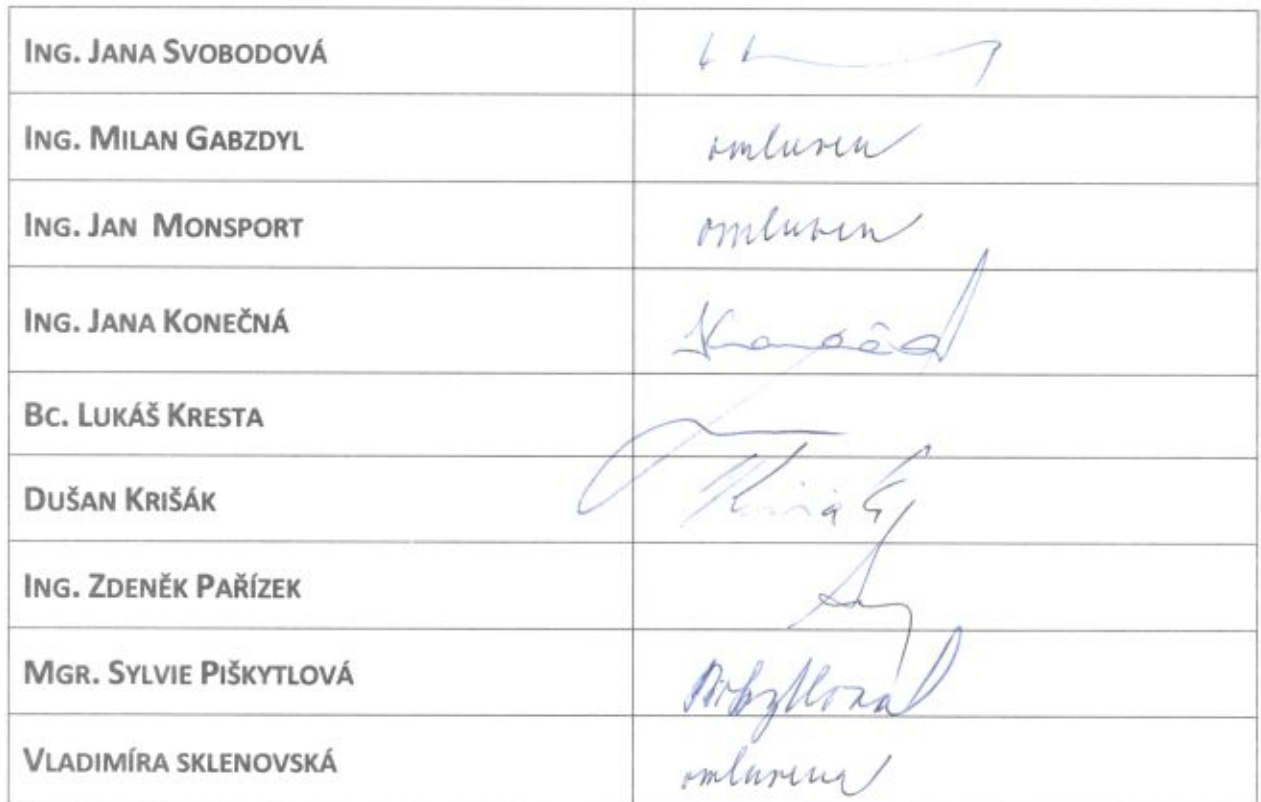 ING. JANA SVOBODOVÁ
ING. MILAN GABZDYL omluven
ING. JAN MONSPORT omluven
ING. JANA KONEČNÁ
BC. LUKÁŠ KRESTA
DUŠAN KRIŠÁK
ING. ZDENĚK PAŘÍZEK
MGR. SYLVIE PIŠKYTLOVÁ
VLADIMÍRA SKLENOVSKÁ omluvena